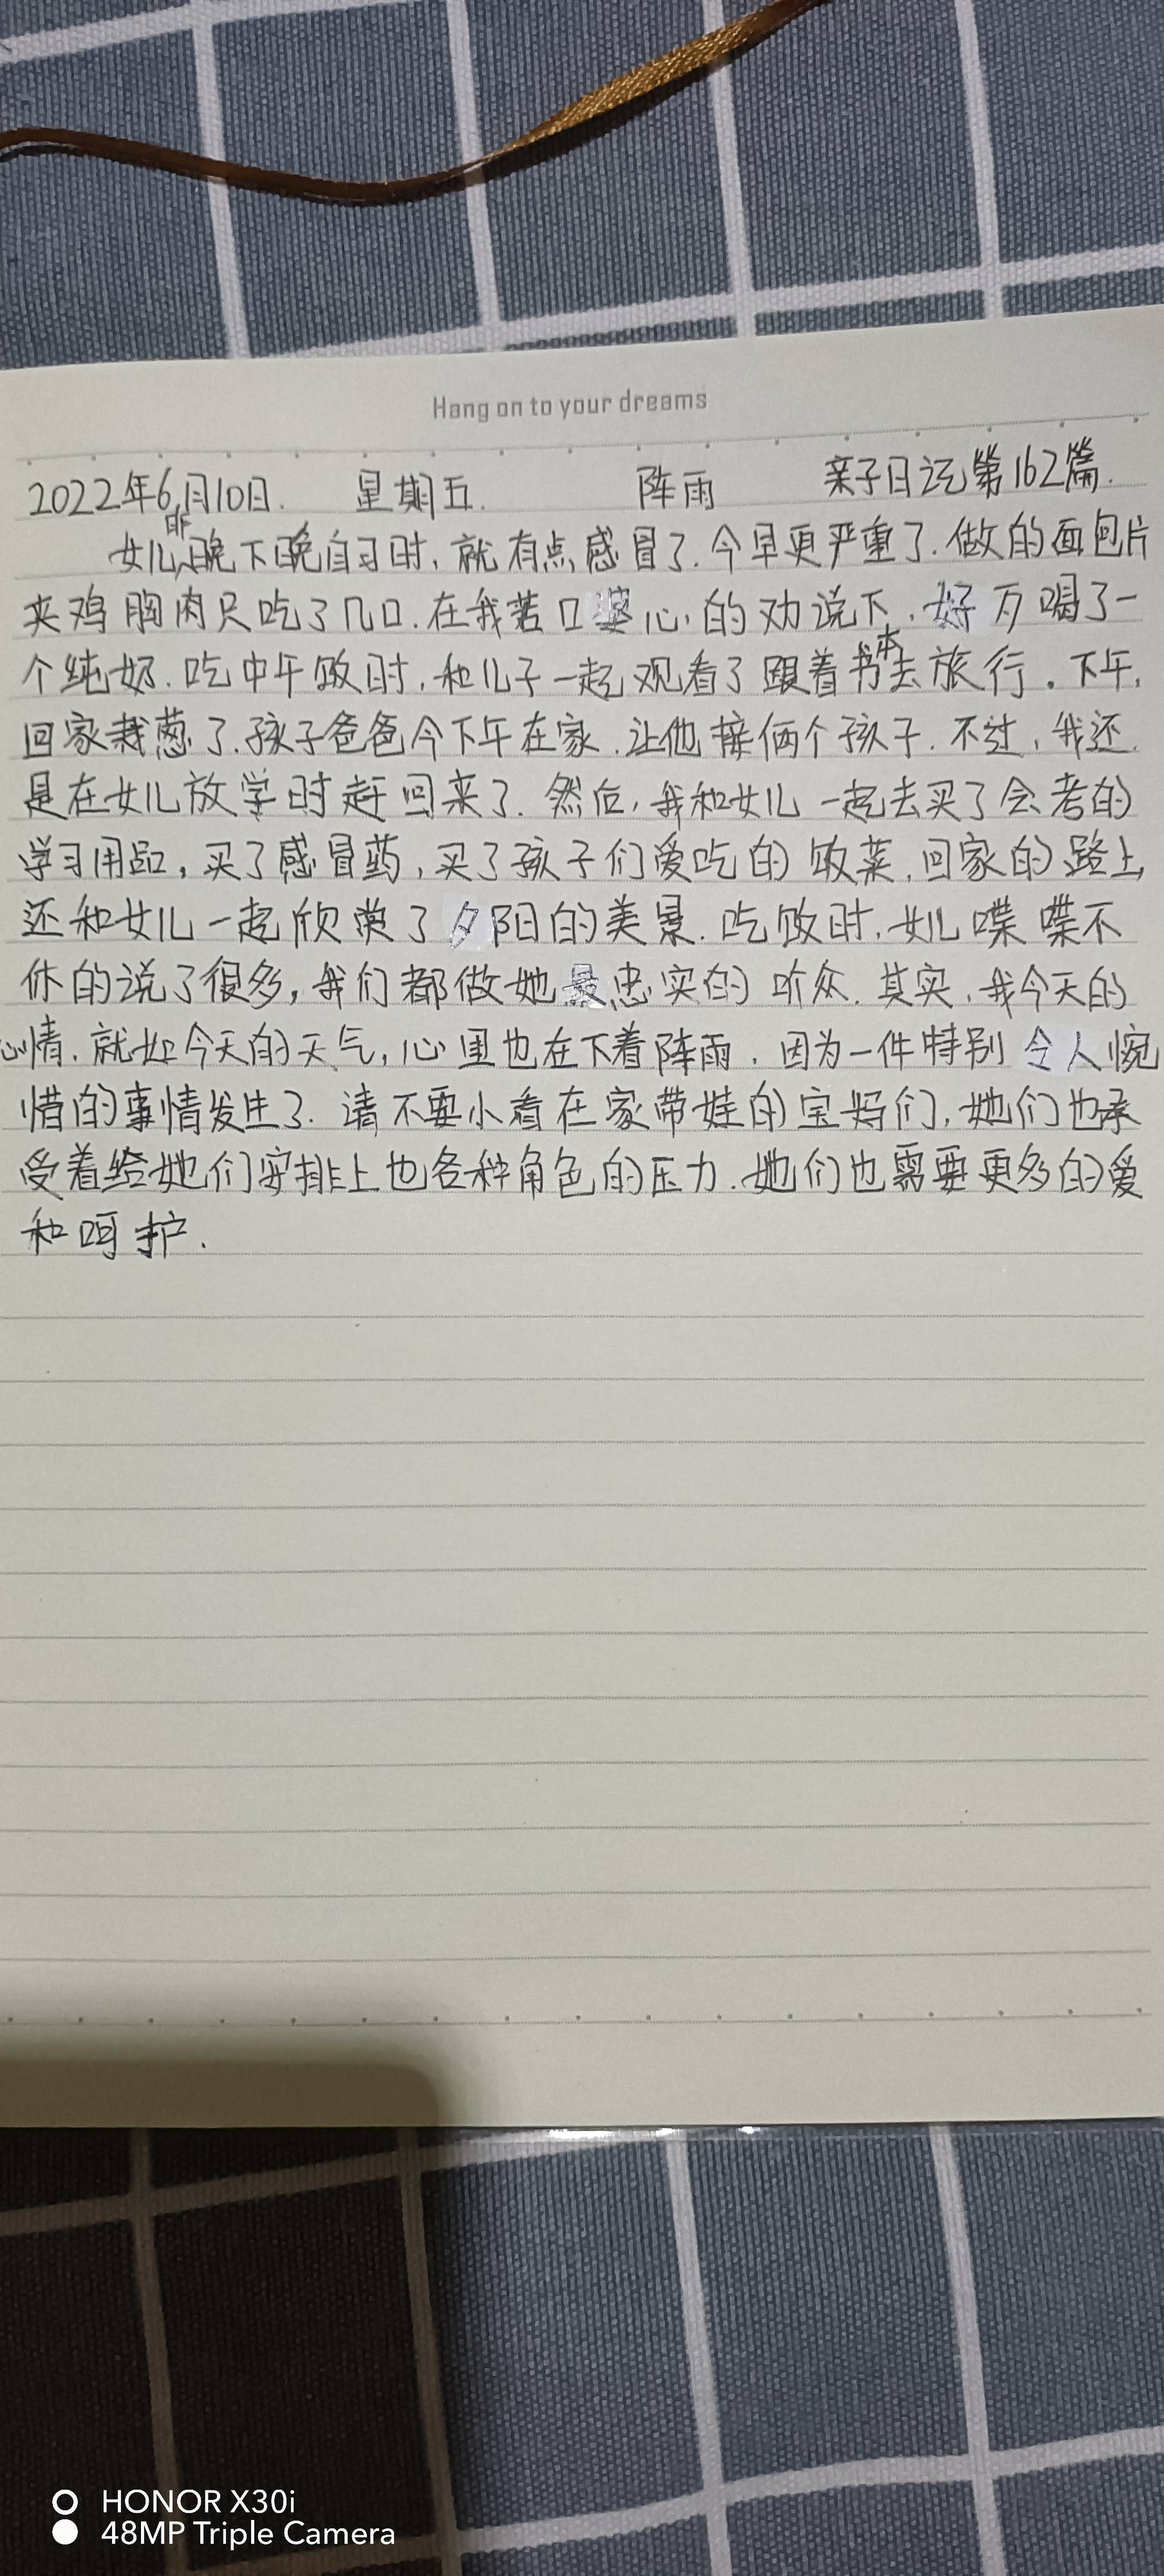 Hang on to your dreams
2022年6月10日. 星期五. 阵雨 亲子日记第162篇.
女儿昨晚下晚自习时,就有点感冒了.今早更严重了.做的面包片
夹鸡胸肉只吃了几口.在我苦口婆心的劝说下,好歹喝了一
个纯奶.吃中午饭时,和儿子一起观看了跟着书本去旅行。下午,
回家栽葱了.孩子爸爸今下午在家.让他接俩个孩子.不过,我还
是在女儿放学时赶回来了.然后,我和女儿一起去买了会考的
学习用品,买了感冒药,买了孩子们爱吃的饭菜,回家的路上
还和女儿一起欣赏了夕阳的美景.吃饭时,女儿喋喋不
休的说了很多,我们都做她最忠实的听众.其实,我今天的
心情.就如今天的天气,心里也在下着阵雨.因为一件特别令人惋
惜的事情发生了.请不要小看在家带娃的宝妈们,她们也承
受着给她们安排上也各种角色的压力.她们也需要更多的爱
和呵护.
HONOR X30i
48MP Triple Camera